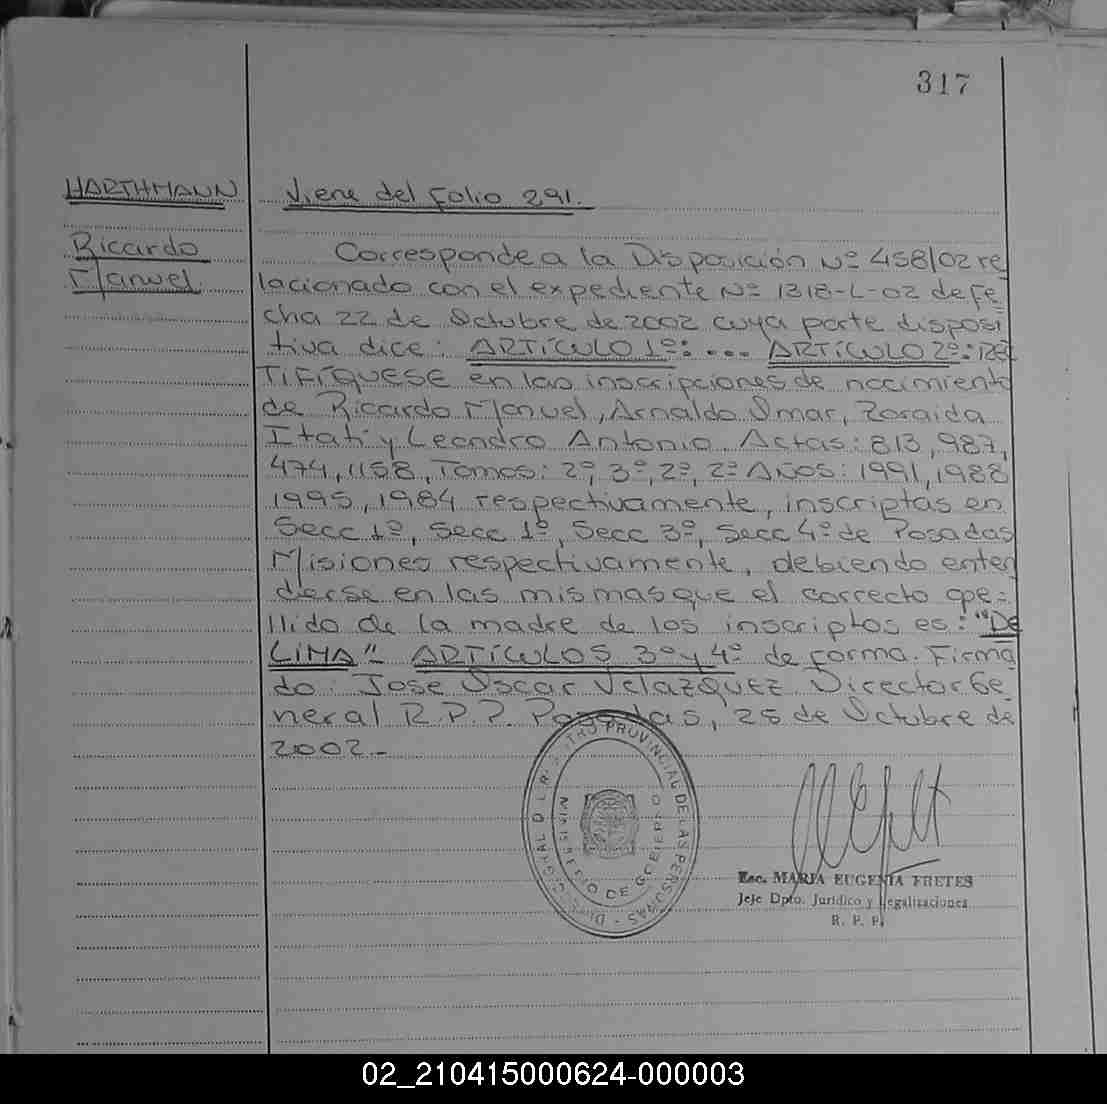 317
HARTHMANN
Ricardo
Manuel
Viene del Folio 291.
Corresponde a la Disposición Nº 458/02 re
lacionado con el expediente Nº 1318-L-02 de fe
cha 22 de Octubre de 2002 cuya parte disposi
tiva dice: ARTÍCULO 1º: ... ARTÍCULO 2º: REC
TIFÍQUESE en las inscripciones de nacimiento
de Ricardo Manuel, Arnaldo Omar, Zoraida
Itatí y Leandro Antonio. Actas: 813, 987,
474, 1158, Tomos: 2º, 3º, 2º, 2º Años: 1991, 1988
1995, 1984 respectivamente, inscriptas en
Secc 1º, Secc 1º, Secc 3º, Secc 4º de Posadas
Misiones respectivamente, debiendo enten
derse en las mismas que el correcto ape-
llido de la madre de los inscriptos es: "DE
LIMA" - ARTÍCULOS 3º y 4º de forma. Firma
do: Jose Oscar Velazquez Director Ge
neral R.P.P. Posadas, 25 de Octubre de
2002.-
DIRECC. GRAL DEL REGISTRO PROVINCIAL DE LAS PERSONAS
MINISTERIO DE GOBIERNO
Esc. MARIA EUGENIA FRETES
Jefe Dpto. Jurídico y Legalizaciones
R. P. P.
02_210415000624-000003